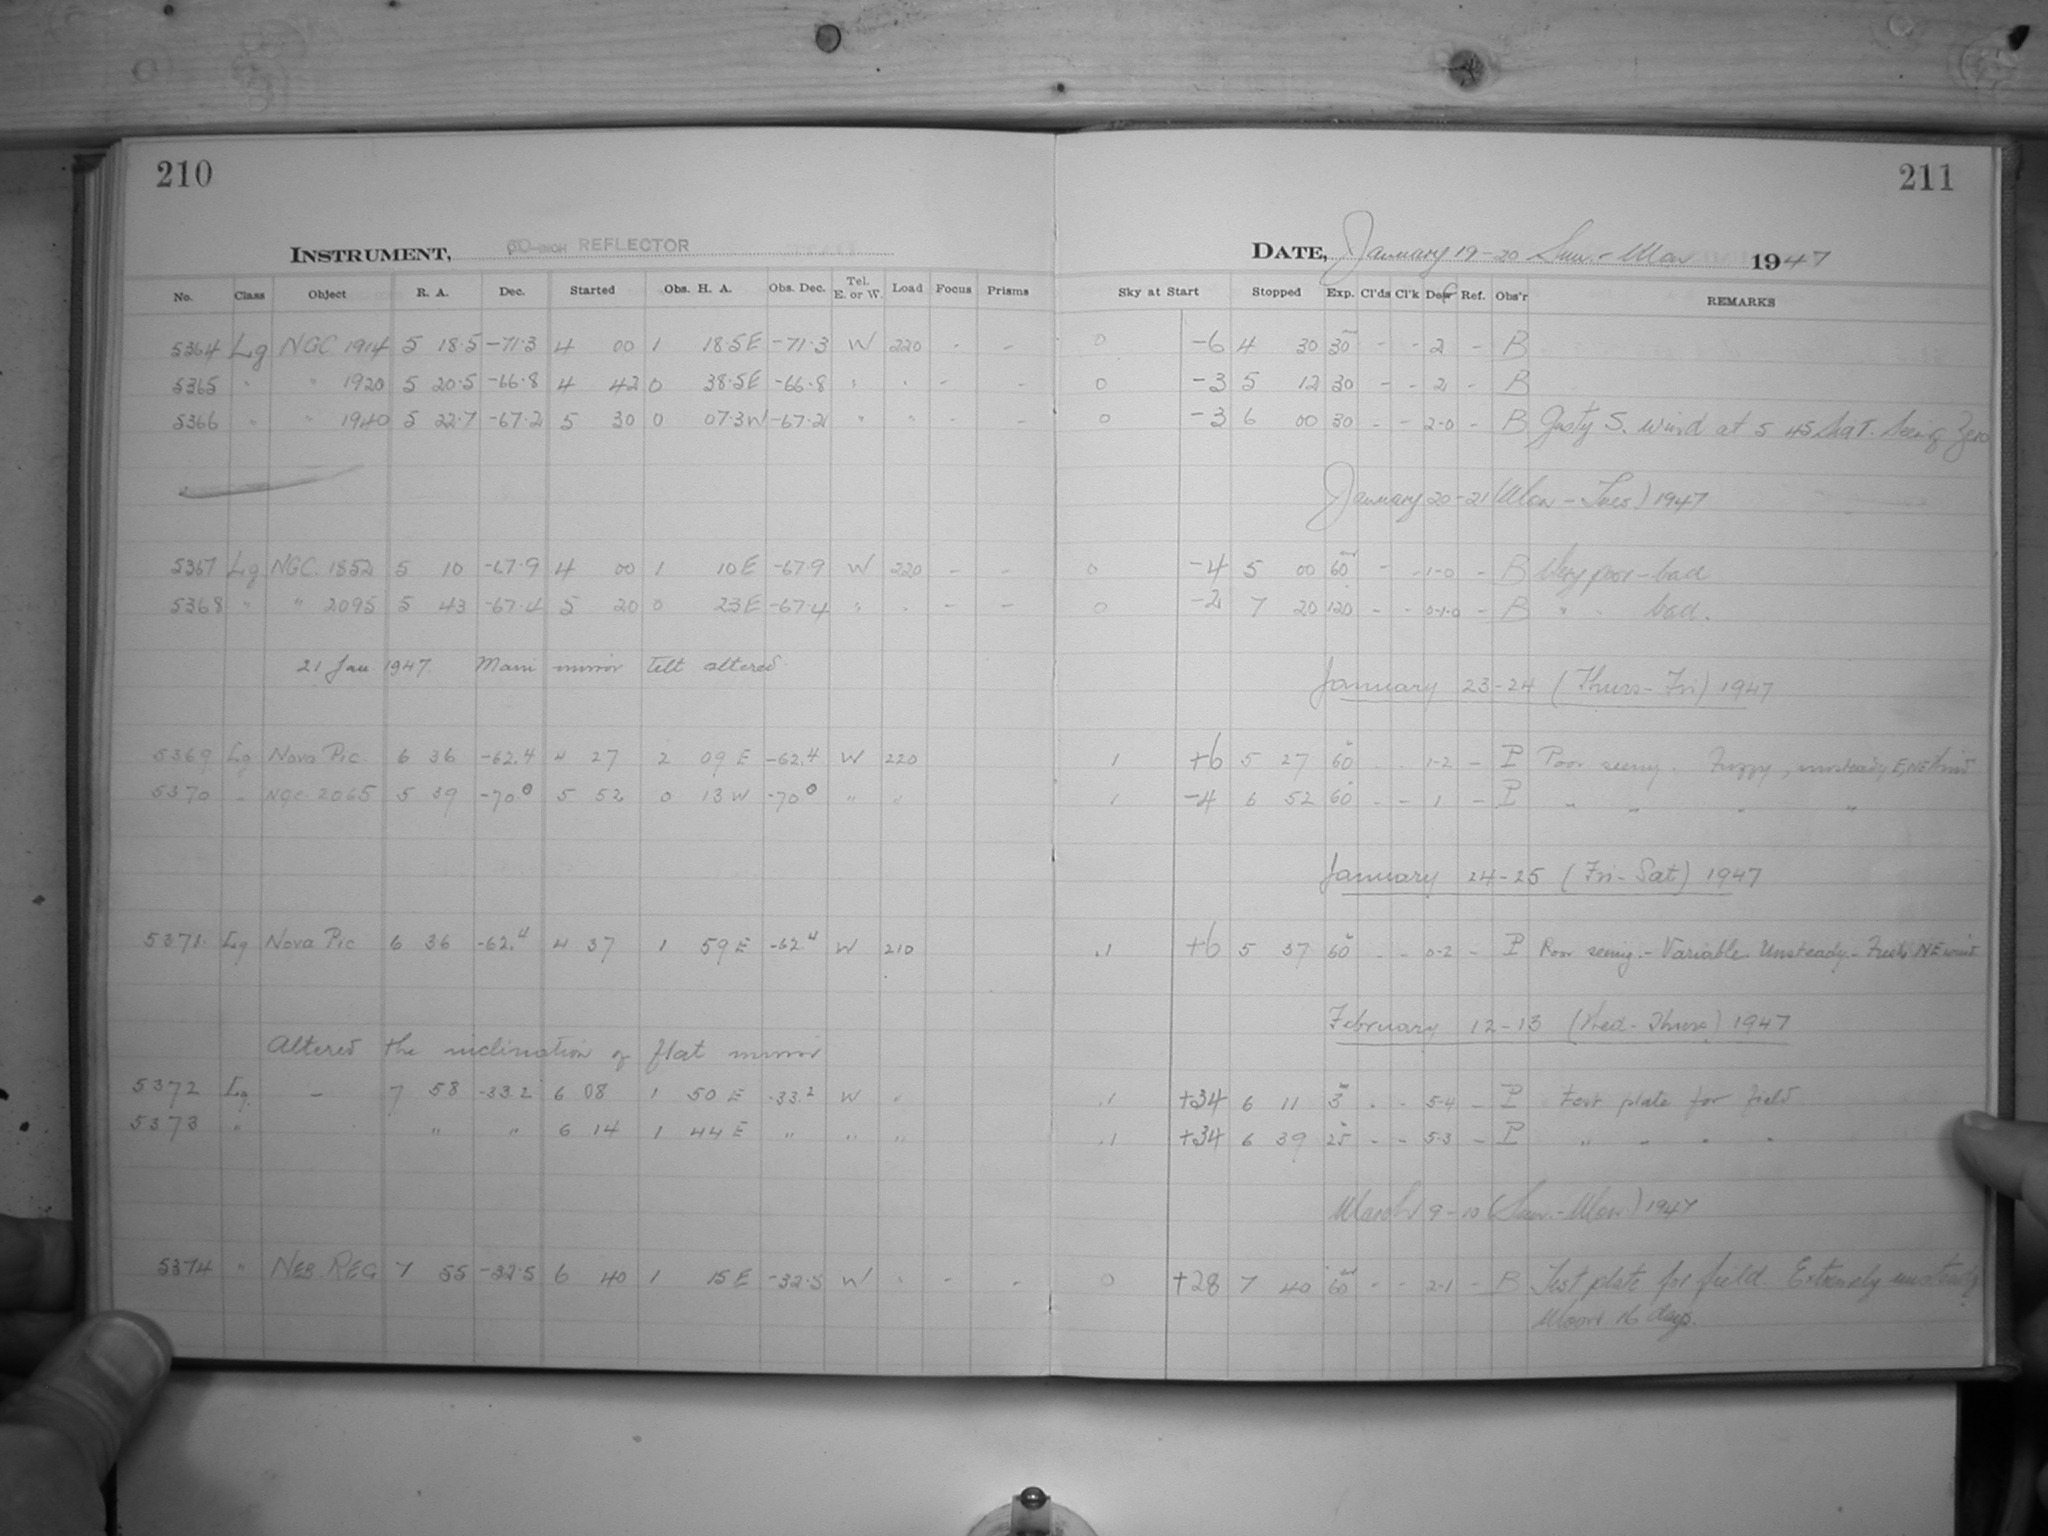 210
INSTRUMENT, 60-INCH REFLECTOR
No. Class Object R. A. Dec. Started Obs. H. A. Obs. Dec. Tel. E. or W. Load Focus Prisms
5364 Lg NGC 1914 5 18.5 -71.3 4 00 1 18.5E -71.3 W 220 - -
5365 " " 1920 5 20.5 -66.8 4 42 0 38.5E -66.8 " " - -
5366 " " 1940 5 22.7 -67.2 5 30 0 07.3W -67.2 " " - -
5367 Lg NGC. 1852 5 10 -67.9 4 00 1 10E -67.9 W 220 - -
5368 " " 2095 5 43 -67.4 5 20 0 23E -67.4 " " - -
21 Jan 1947. Main mirror tilt altered.
5369 Lg Nova Pic. 6 36 -62.4 4 27 2 09 E -62.4 W 220
5370 " NGC. 2065 5 39 -70.0 5 52 0 13 W -70.0 " "
5371. Lg Nova Pic 6 36 -62.4 4 37 1 59 E -62.4 W 210
Altered the inclination of flat mirror
5372 Lg. - 7 58 -33.2 6 08 1 50 E -33.2 W "
5373 " " " 6 14 1 44 E " " "
5374 " NEB REG 7 55 -32.5 6 40 1 15 E -32.5 W " - -
211
DATE, January 19-20 Sun.-Mon 1947
Sky at Start Stopped Exp. Cl'ds Cl'k Def Ref. Obs'r REMARKS
0 -6 4 30 30 - - 2 - B
0 -3 5 12 30 - - 2 - B
0 -3 6 00 30 - - 2-0 - B Gusty S. wind at 5 45 Sid T. Seeing Zero
January 20-21 (Mon-Tues) 1947
0 -4 5 00 60 - - 1-0 - B Very poor-bad
0 -2 7 20 120 - - 0-1-0 - B " " bad.
January 23-24 (Thurs-Fri) 1947
1 +6 5 27 60 - - 1-2 - P Poor seeing. Fuzzy, unsteady E, NE wind
1 -4 6 52 60 - - 1 - P " " " "
January 24-25 (Fri-Sat) 1947
.1 +6 5 37 60 - - 0-2 - P Poor seeing.- Variable. Unsteady.- Fresh NE wind
February 12-13 (Wed-Thurs) 1947
.1 +34 6 11 3 - - 5-4 - P Test plate for field
.1 +34 6 39 25 - - 5-3 - P " " " "
March 9-10 (Sun.-Mon.) 1947
0 +28 7 40 60 - - 2-1 - B Test plate for field. Extremely unsteady
Moon 16 days.